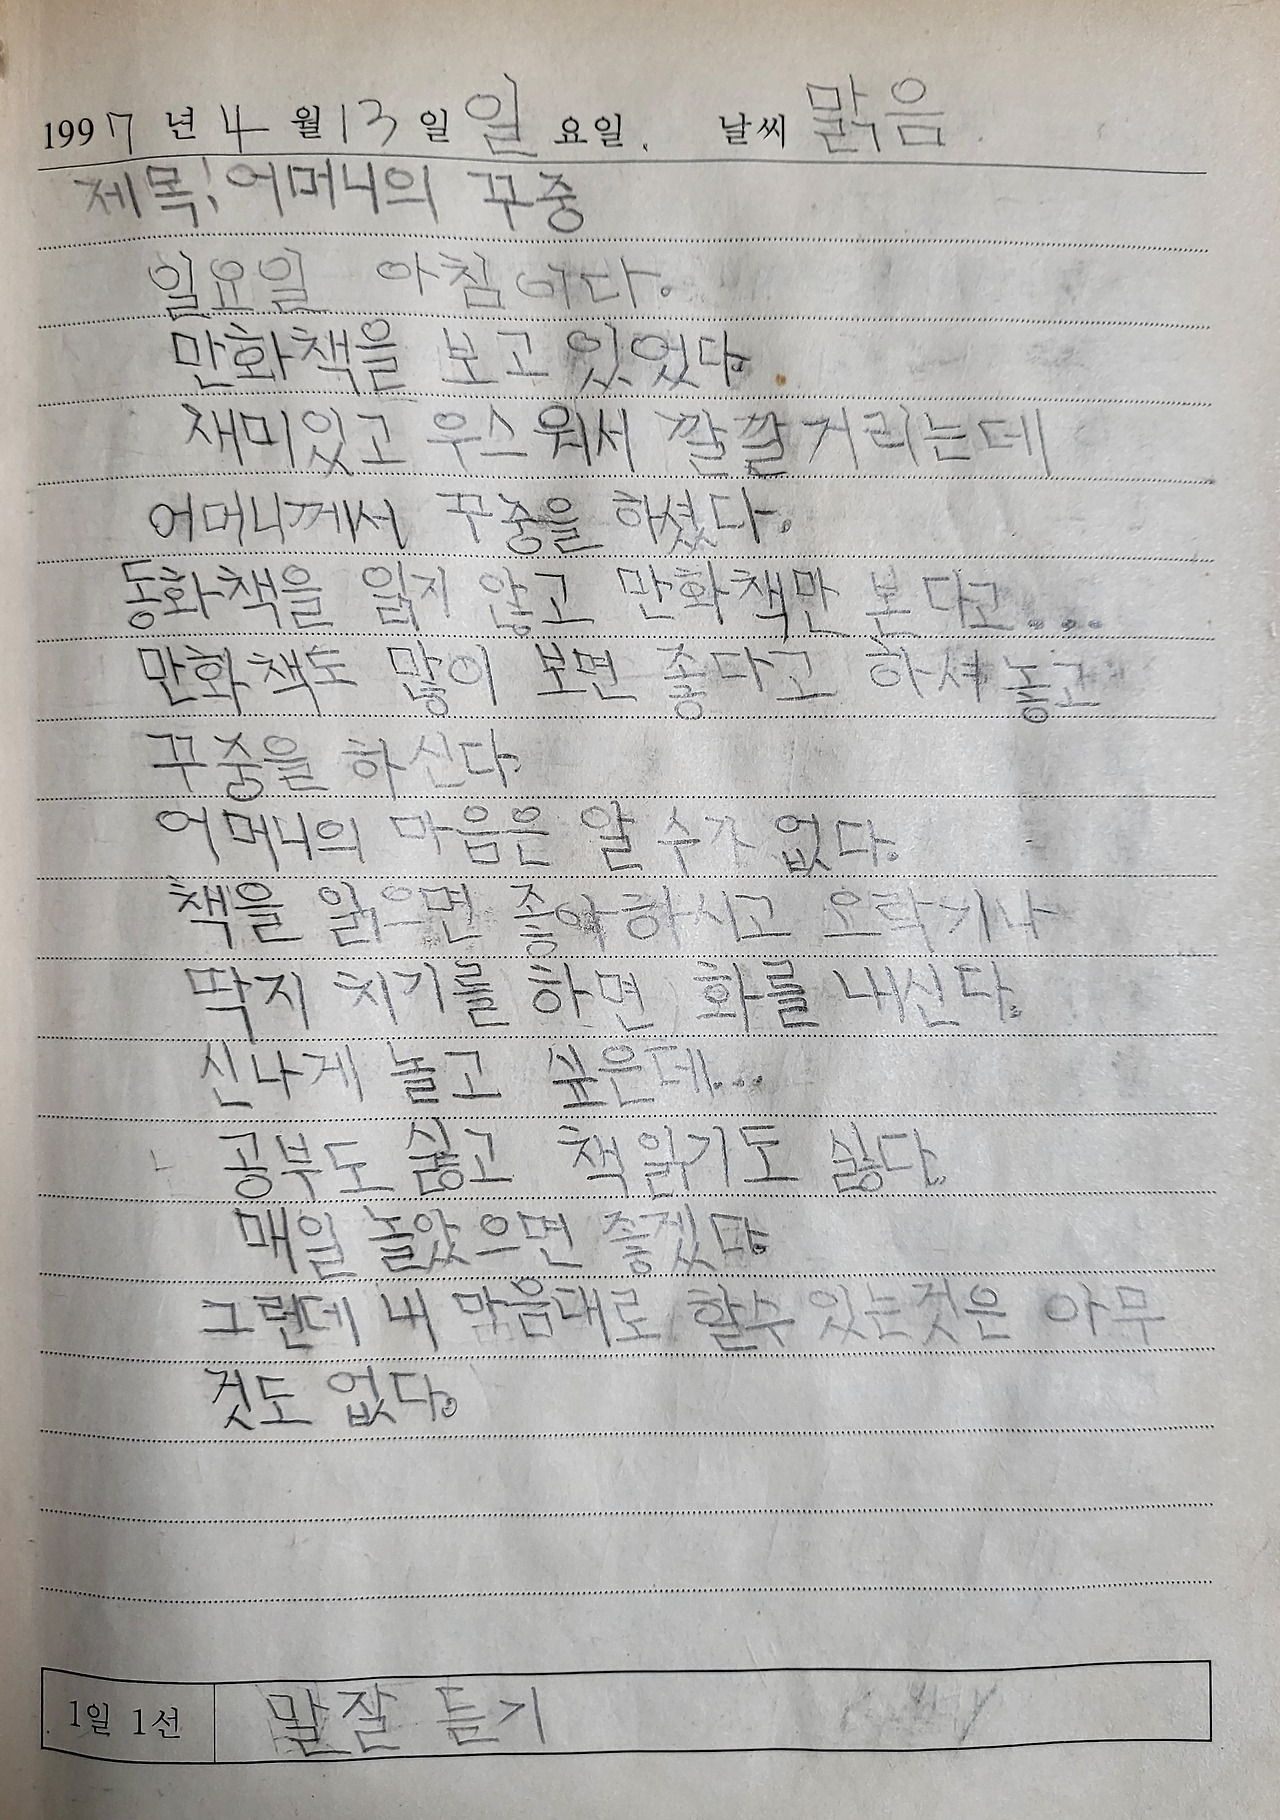 1997년 4월 13일 일요일. 날씨 맑음
제목! 어머니의 꾸중
일요일 아침이다.
만화책을 보고 있었다.
재미있고 우스워서 깔깔거리는데
어머니께서 꾸중을 하셨다.
동화책을 읽지 않고 만화책만 본다고....
만화책도 많이 보면 좋다고 하셔놓고
꾸중을 하신다.
어머니의 마음은 알 수가 없다.
책을 읽으면 좋아하시고 오락기나
딱지 치기를 하면 화를 내신다.
신나게 놀고 싶은데...
공부도 싫고 책읽기도 싫다.
매일 놀았으면 좋겠다.
그런데 내 맘음대로 할수있는것은 아무
것도 없다.
1일 1선 말잘 듣기